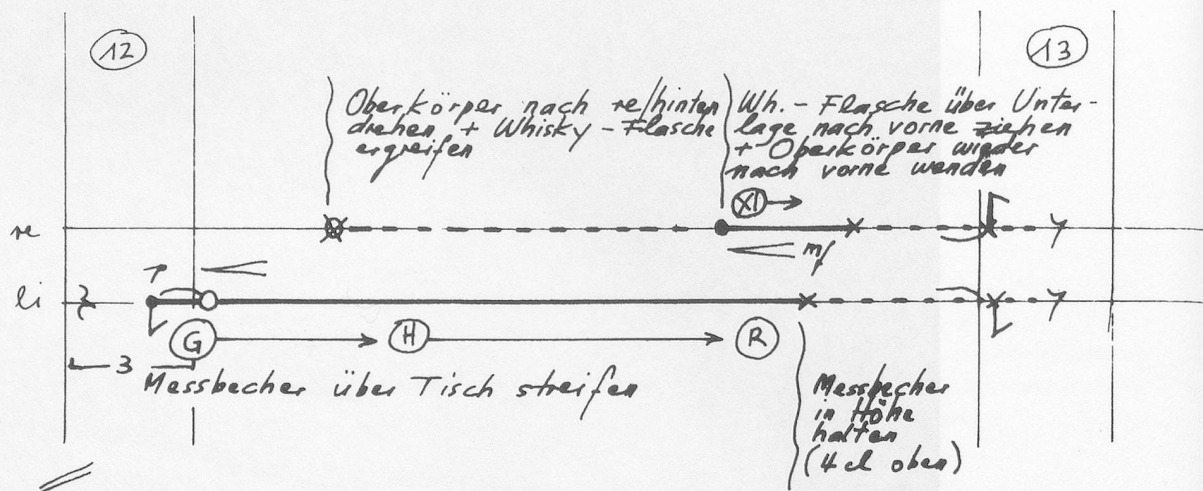 12
13
Oberkörper nach re/hinten
drehen + Whisky-Flasche
ergreifen
Wh.-Flasche über Unter-
lage nach vorne ziehen
+ Oberkörper wieder
nach vorne wenden
XI
re
mf
p
li
G
H
R
3
Messbecher über Tisch streifen
Messbecher
in Höhe
halten
(4 cl oben)